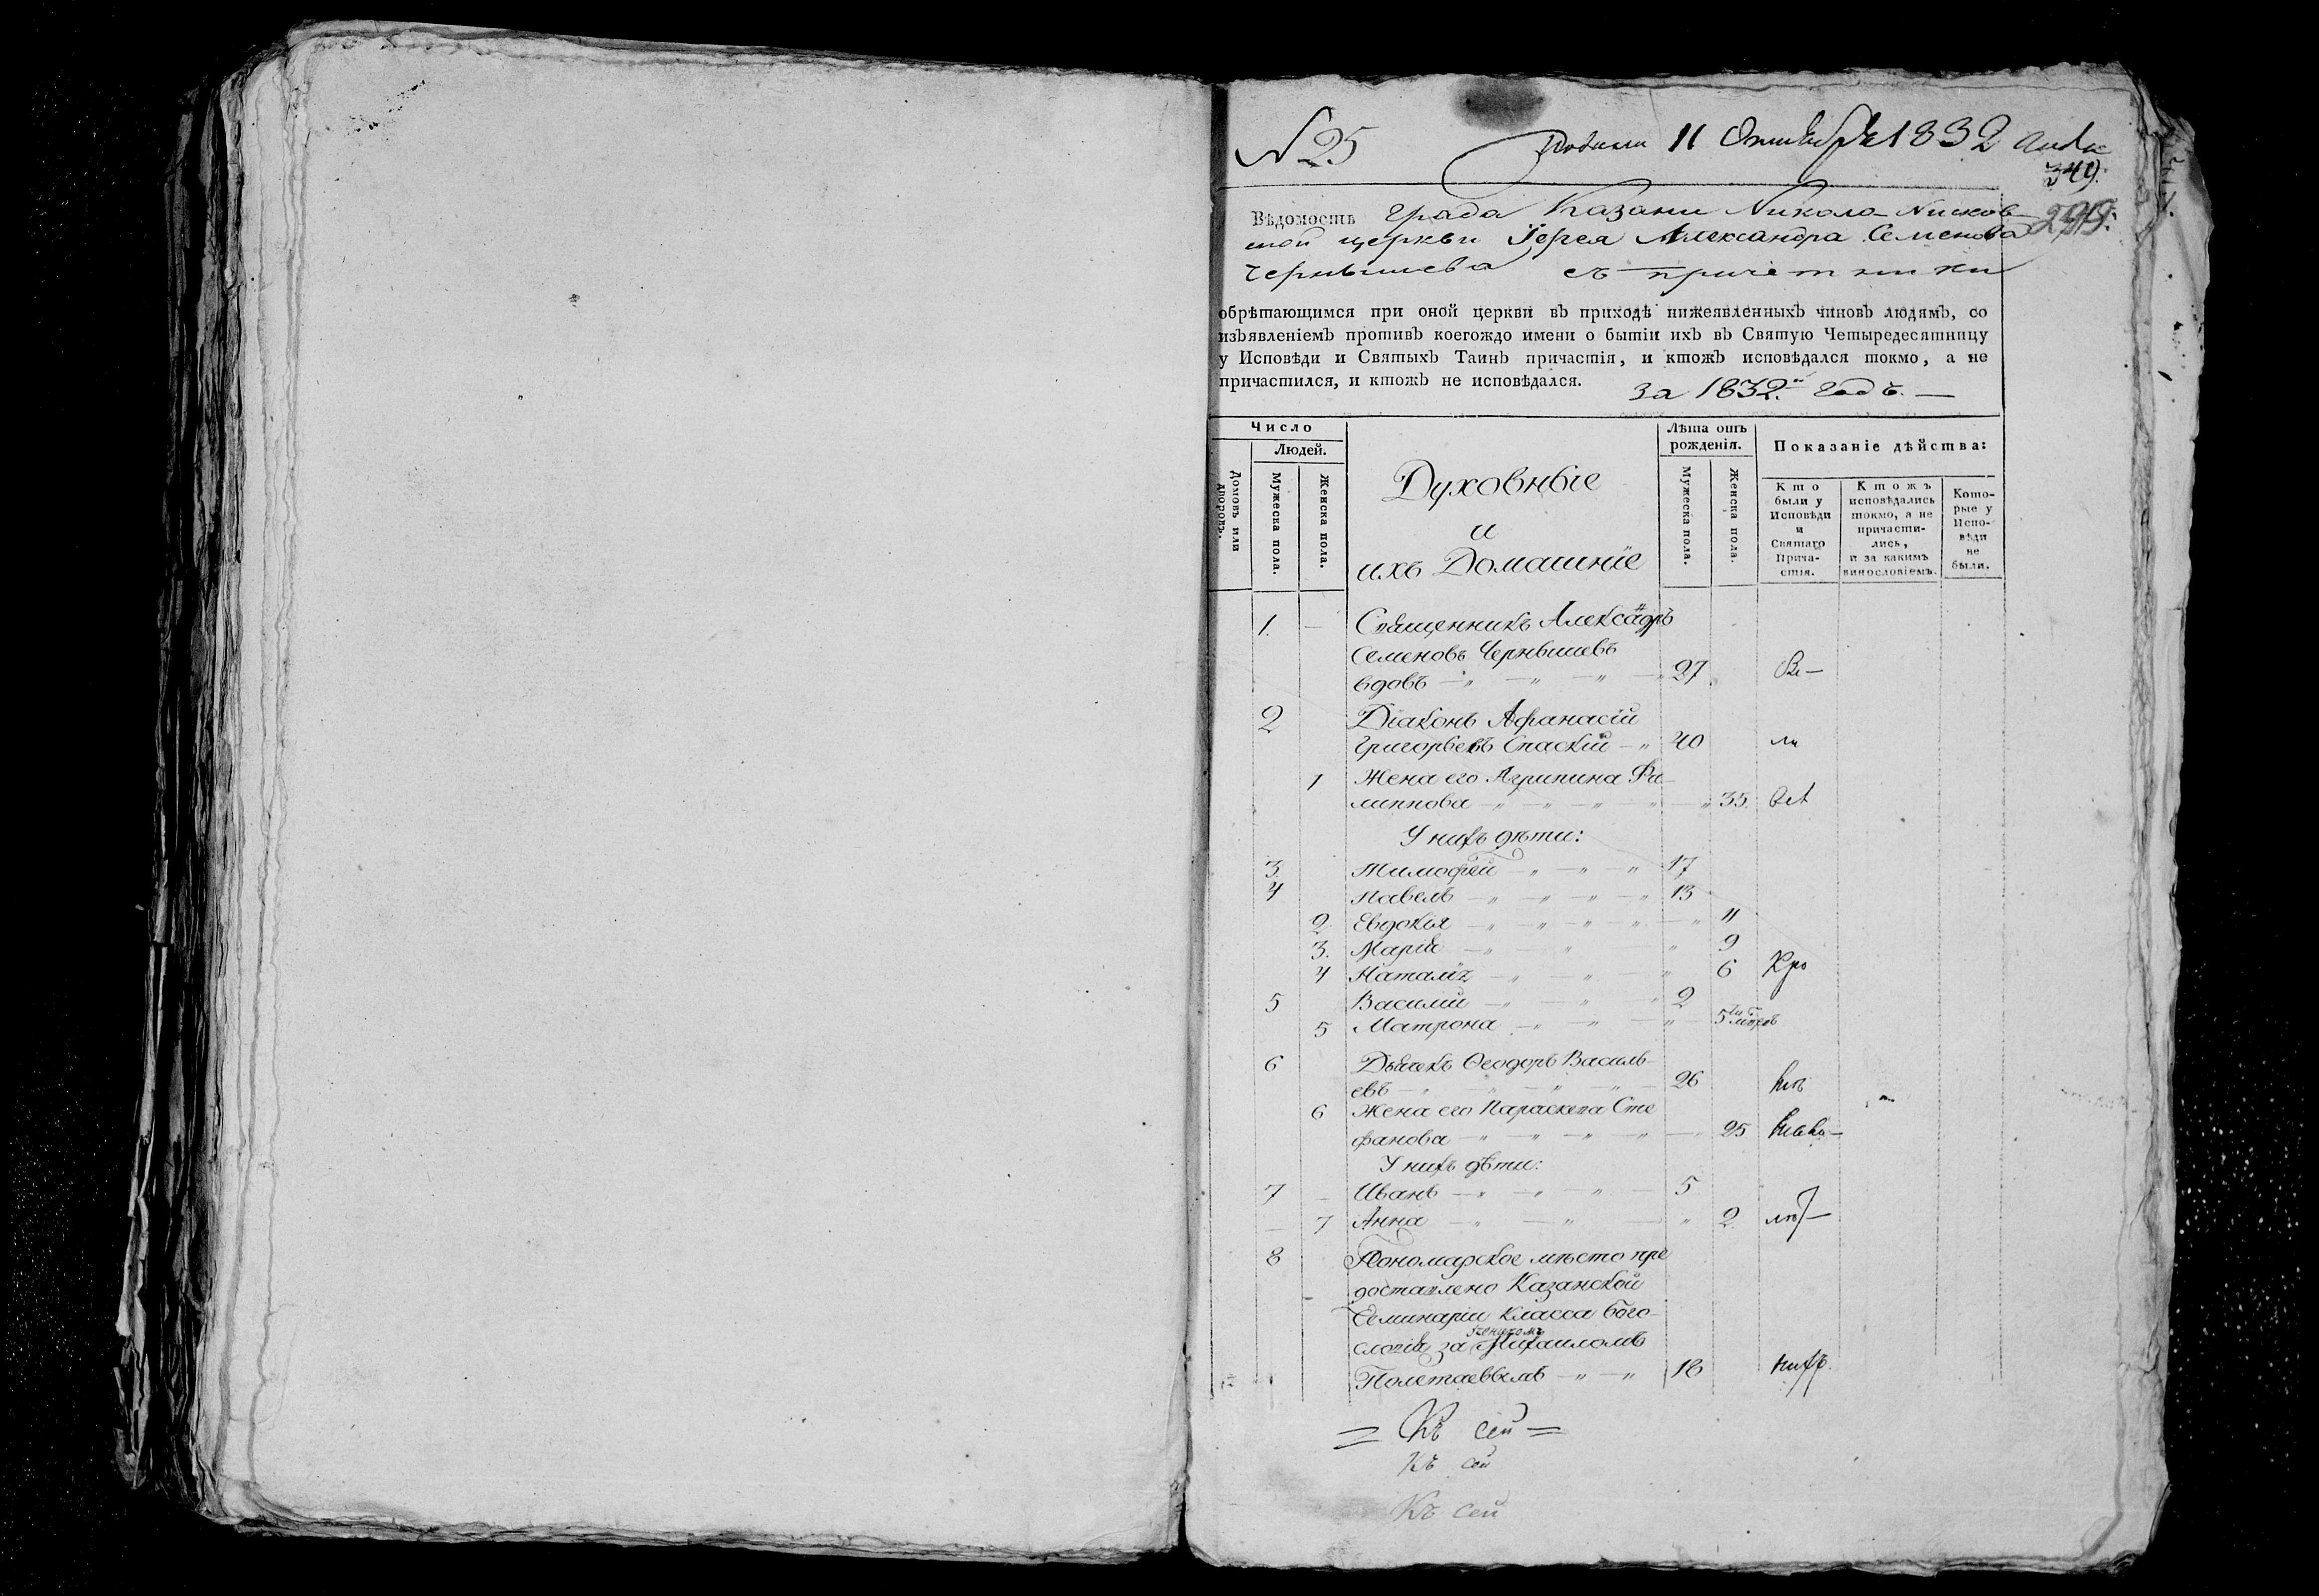 N 25
11 Октября 1832
349.
Вѣдомость Града Казани Николо-Нисков-
ской церкви Іерея Александра Семенова
Чернышева съ причетники
обрѣтающимся при оной церкви въ приходѣ нижеявленныхъ чиновъ людямъ, со
изъявленіемъ противъ коегождо имени о бытіи ихъ въ Святую Четыредесятницу
у Исповѣди и Святыхъ Таинъ причастія, и ктожъ исповѣдался токмо, а не
причастился, и ктожъ не исповѣдался. за 1832.й годъ. —
Число
Людей.
Домовъ или дворовъ.
Мужеска пола.
Женска пола.
Духовные
и
ихъ Домашніе
Лѣта отъ
рожденія.
Мужеска пола.
Женска пола.
Показаніе дѣйства:
Кто
были у
Исповѣди
и
Святаго
Прича-
стія.
Ктожъ
исповѣдались
токмо, а не
причасти-
лись,
и за какимъ
винословіемъ.
Кото-
рые у
Испо-
вѣди
не
были.
1. — Священникъ Александръ
Семеновъ Чернышевъ
вдовъ 27
2 Діаконъ Афанасій
Григорьевъ Спаскій 40
1 Жена его Агрипина Фи-
липпова 35.
У нихъ дѣти:
3. Тимофей 17
4 Павелъ 13
2. Евдокія 11
3. Марія 9
4 Наталія 6
5 Василій 2
5 Матрона 5
6 Дьячекъ Ѳеодоръ Василь-
евъ 26
6 Жена его Параскева Сте
фанова 25
У нихъ дѣти:
7 — Иванъ 5
— 7 Анна 2.
8 Пономарское мѣсто пре
доставлено Казанской
Семинаріи класса бого-
словія за ученикомъ Михаиломъ
Полетаевымъ 18
= Къ сей =
Къ сей
Къ сей